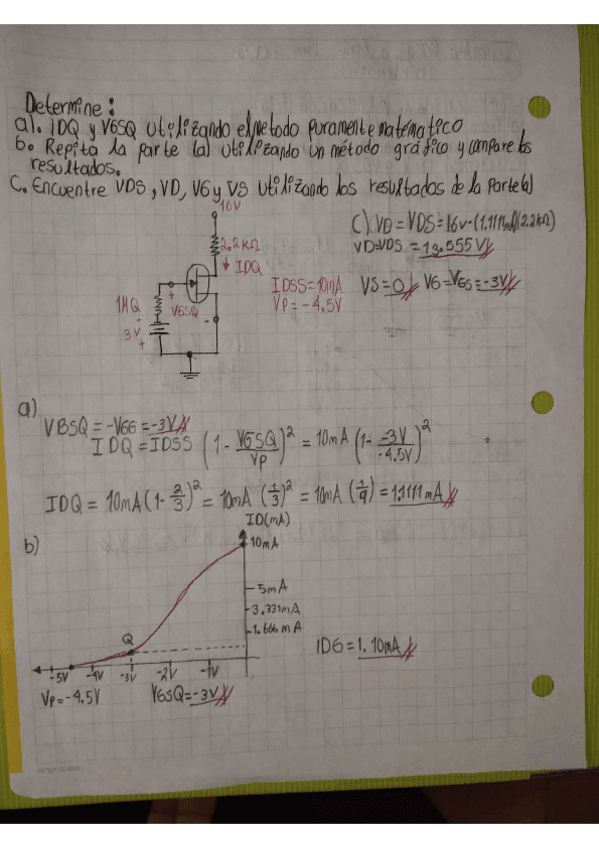 Determine:
a). IDQ y VGSQ utilizando el metodo puramente matématico
b. Repita la parte (a) utilizando un método gráfico y compare los
resultados.
C. Encuentre VDS, VD, VG y VS utilizando los resultados de la parte (a)
16V
2.2KΩ
IDQ
1MΩ
+
VGSQ
-
-
3V
+
IDSS=10mA
VP=-4.5V
C). VD=VDS=16v-(1.1111mA)(2.2kΩ)
VD=VDS=13.555V
VS=0 VG=VGS=-3V
a)
VBSQ=-VGG=-3V
IDQ=IDSS (1-VGSQ/VP)²=10mA(1- -3V/-4.5V)²
IDQ=10mA(1-2/3)²=10mA(1/3)²=10mA(1/9)=1.1111mA
b)
ID(mA)
10mA
5mA
3.331mA
1.666mA
Q
-5V -4V -3V -2V -1V
VP=-4.5V VGSQ=-3V
IDG=1.10mA